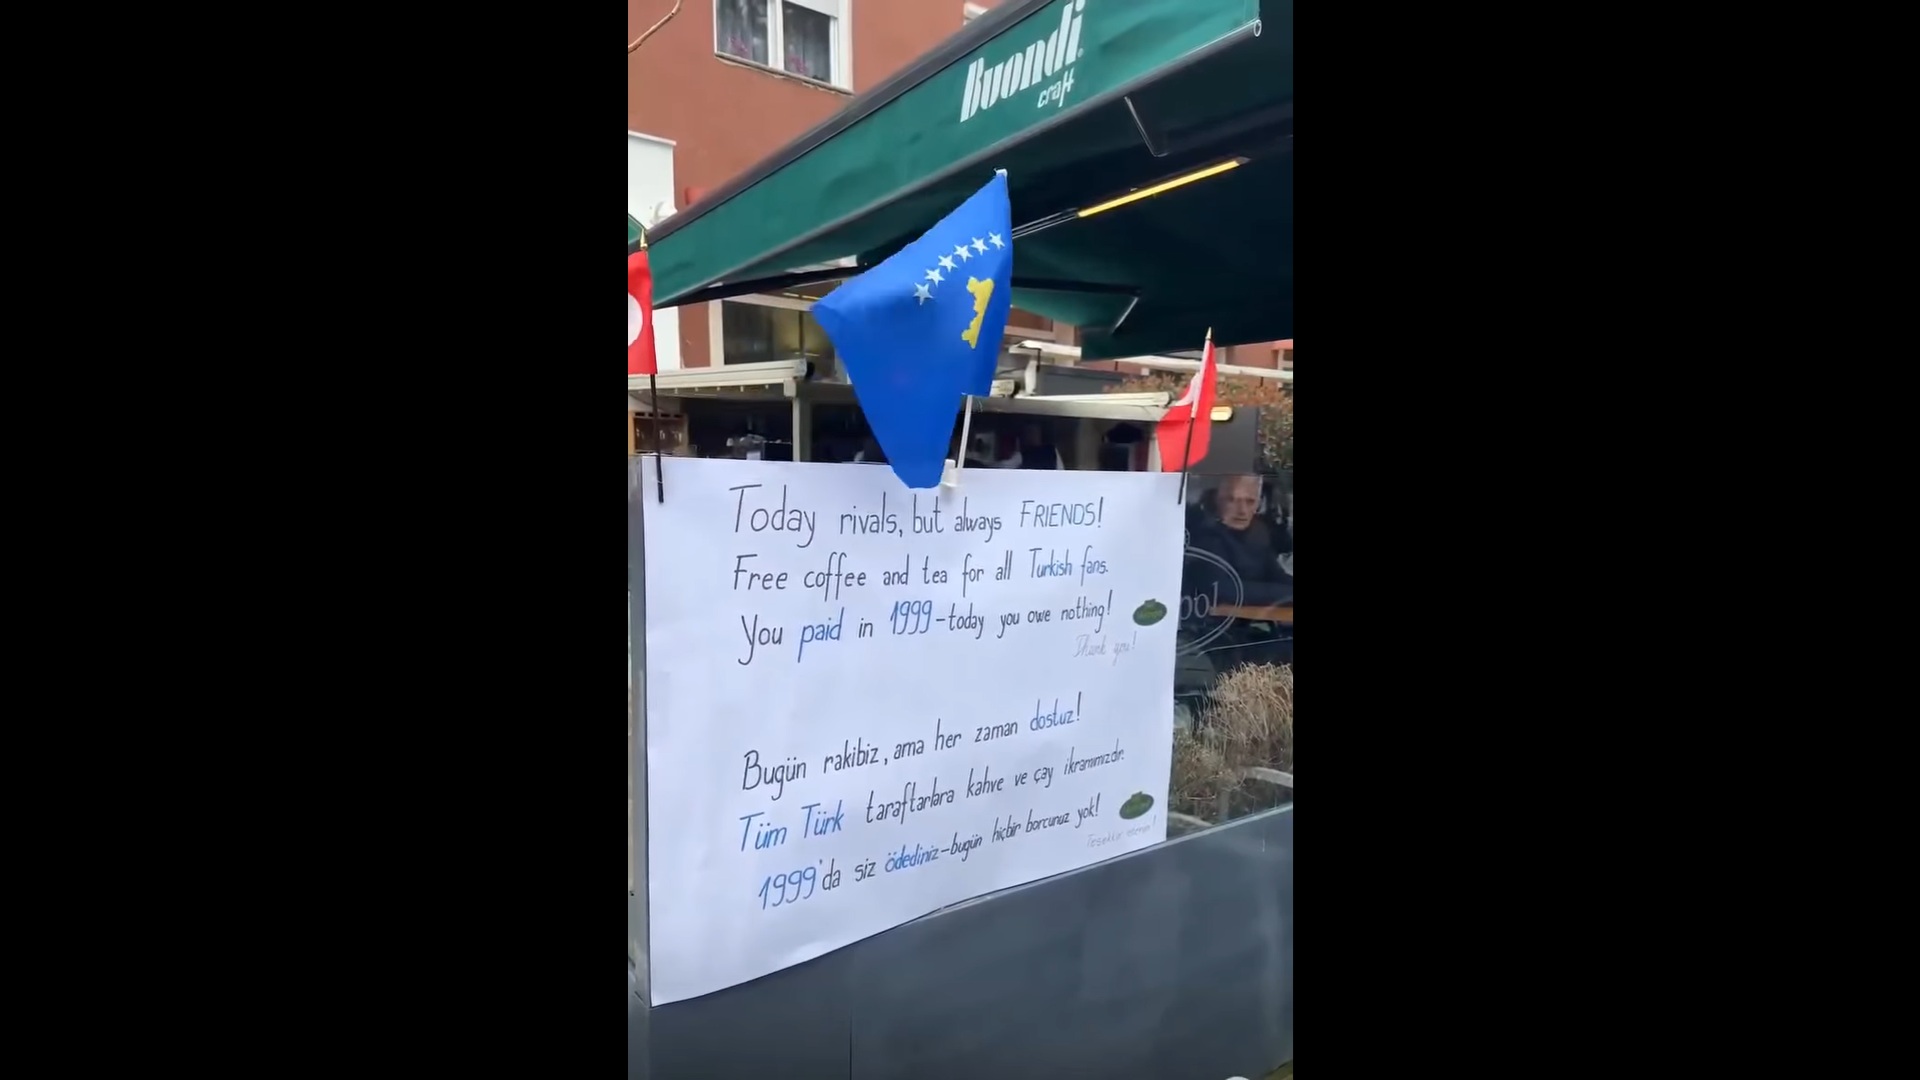 Buondi
craft
Today rivals, but always FRIENDS!
Free coffee and tea for all Turkish fans.
You paid in 1999-today you owe nothing!
Thank you!
Bugün rakibiz, ama her zaman dostuz!
Tüm Türk taraftarlara kahve ve çay ikramımızdır.
1999'da siz ödediniz-bugün hiçbir borcunuz yok!